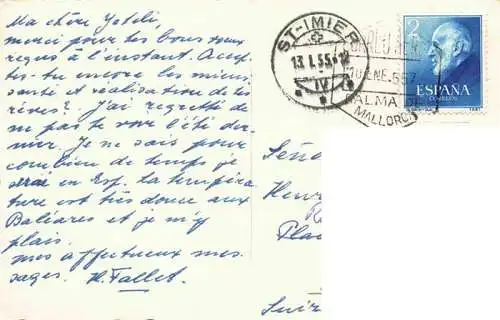 Ma chère Yoteli,
merci pour tes bons vœux
reçus à l'instant. Accep-
tes-tu encore les miens
santé et réalisation de tes
rêves? J'ai regretté de
ne pas te voir l'été der-
nier. Je ne sais pour
combien de temps je
serai en Esp. La tempéra-
ture est très douce aux
Baléares et je m'y
plais.
mes affectueux mes-
sages. H. Fallet.
ST-IMIER
13.I.55.-12
IV
10 ENE.55
PALMA DE
MALLORCA
2
ESPAÑA
CORREOS
Seño
Henr
Pla
Suiz